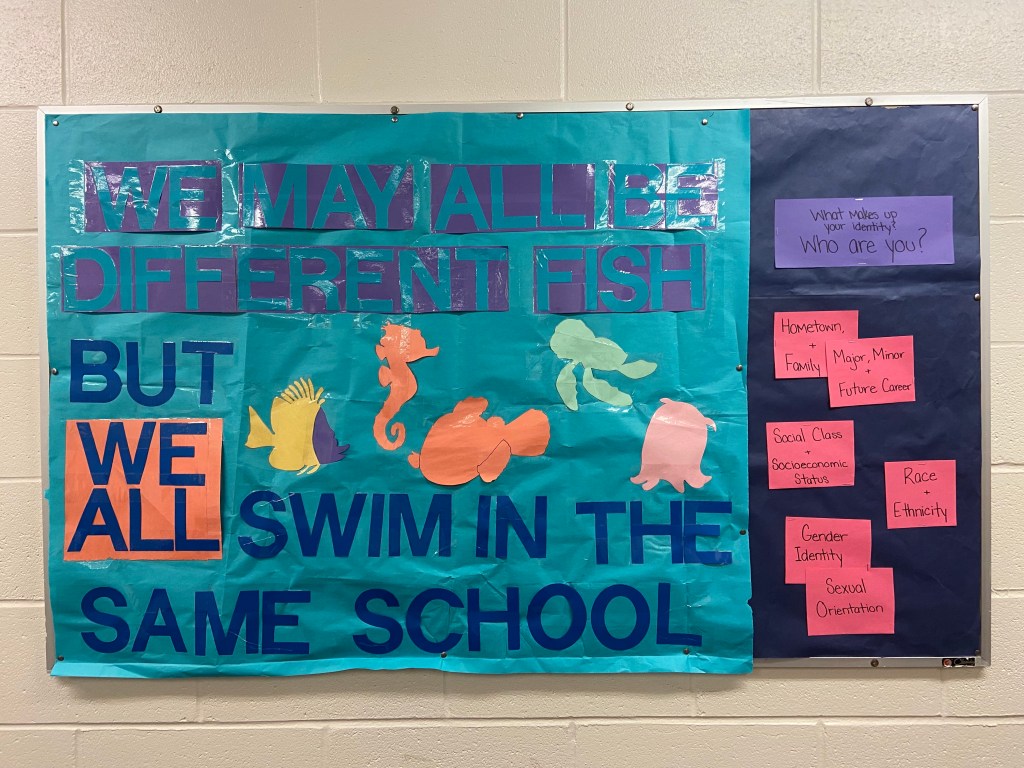 WE MAY ALL BE
DIFFERENT FISH
BUT
WE
ALL
SWIM IN THE
SAME SCHOOL
What Makes up
your identity?
Who are you?
Hometown,
+
Family
Major, Minor
+
Future Career
Social Class
+
Socioeconomic
Status
Race
+
Ethnicity
Gender
Identity
Sexual
Orientation